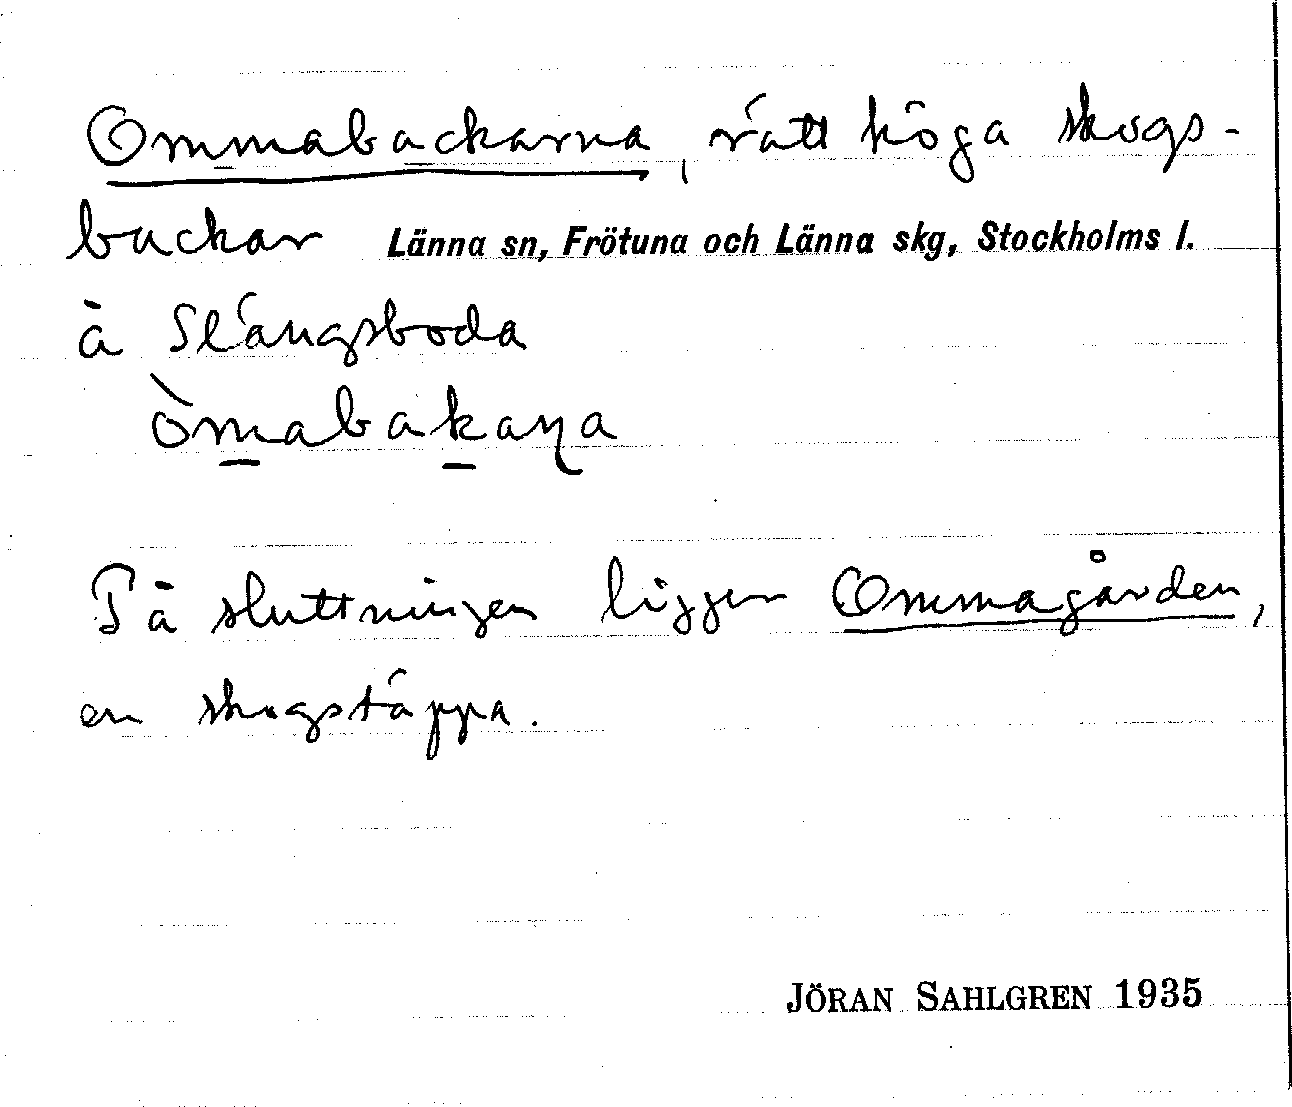 Ommabackarna, rätt höga skogs-
backar Länna sn, Frötuna och Länna skg, Stockholms l.
å Slängsboda
òmabakaɳa
På sluttningen ligger Ommagården,
en skogstäppa.
JÖRAN SAHLGREN 1935